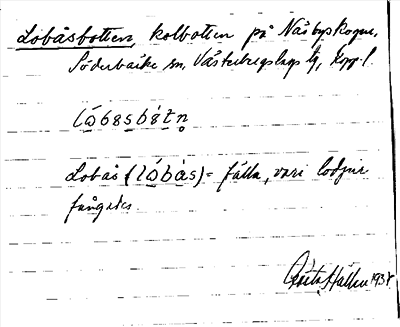 Lobåsbotten, kolbotten på Näsbyskogen,
Söderbärke sn, Västerbergslags tg, Kopp. l.
Lobås ( = fälla, vari lodjur
fångades.
Gösta Hallm 193